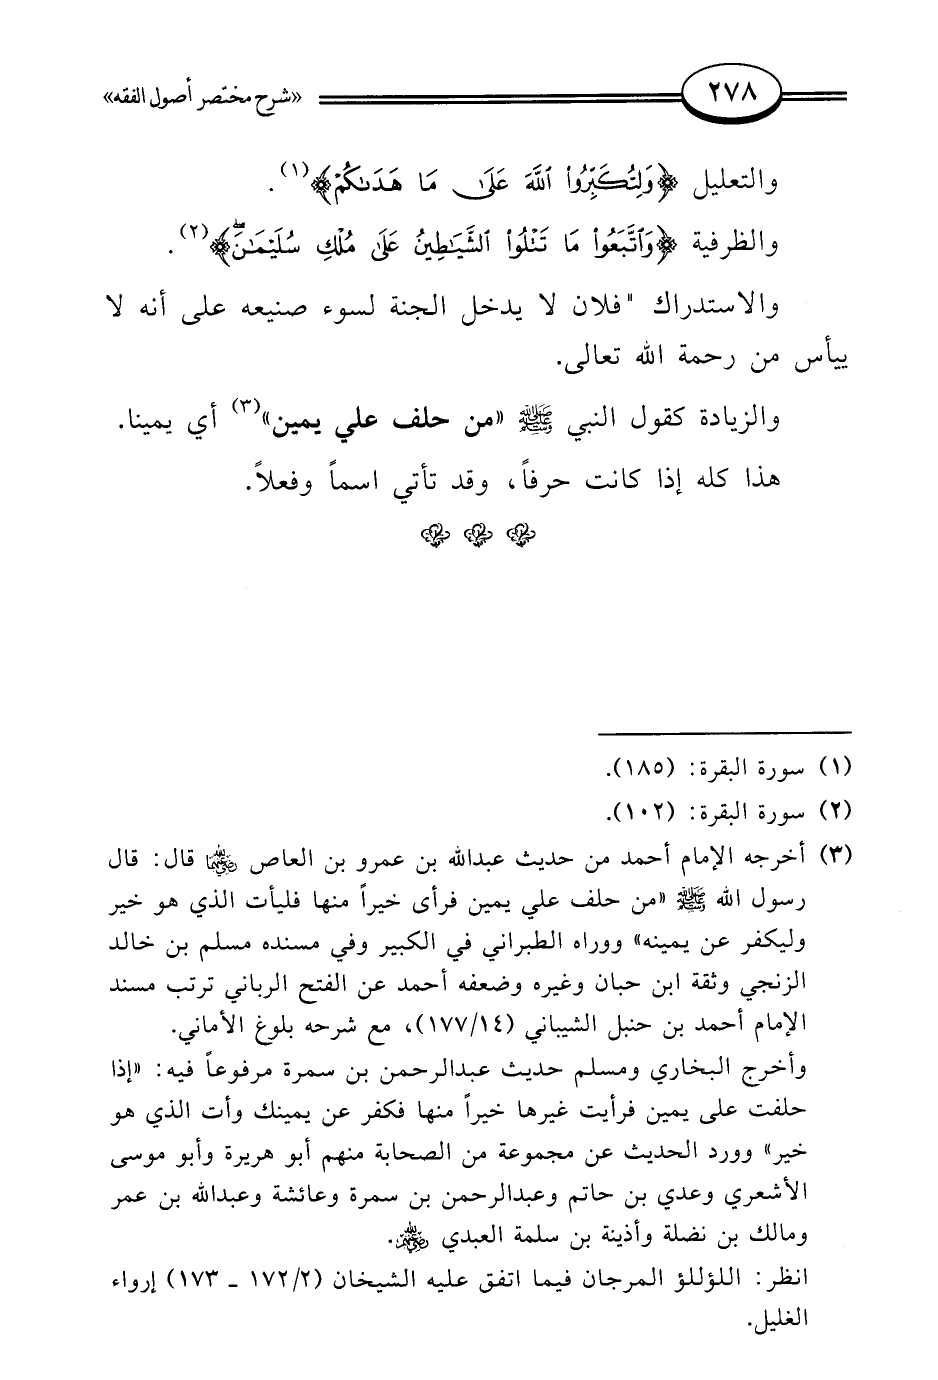 ٢٧٨ «شرح مختصر أصول الفقه»
والتعليل ﴿وَلِتُكَبِّرُوا۟ ٱللَّهَ عَلَىٰ مَا هَدَىٰكُمْ﴾(١).
والظرفية ﴿وَٱتَّبَعُوا۟ مَا تَتْلُوا۟ ٱلشَّيَـٰطِينُ عَلَىٰ مُلْكِ سُلَيْمَـٰنَۖ﴾(٢).
والاستدراك "فلان لا يدخل الجنة لسوء صنيعه على أنه لا
ييأس من رحمة الله تعالى.
والزيادة كقول النبي ﷺ «من حلف علي يمين»(٣) أي يمينا.
هذا كله إذا كانت حرفاً، وقد تأتي اسماً وفعلاً.
(١) سورة البقرة: (١٨٥).
(٢) سورة البقرة: (١٠٢).
(٣) أخرجه الإمام أحمد من حديث عبدالله بن عمرو بن العاص رضي الله عنهما قال: قال
رسول الله ﷺ «من حلف علي يمين فرأى خيراً منها فليأت الذي هو خير
وليكفر عن يمينه» ووراه الطبراني في الكبير وفي مسنده مسلم بن خالد
الزنجي وثقة ابن حبان وغيره وضعفه أحمد عن الفتح الرباني ترتب مسند
الإمام أحمد بن حنبل الشيباني (١٧٧/١٤)، مع شرحه بلوغ الأماني.
وأخرج البخاري ومسلم حديث عبدالرحمن بن سمرة مرفوعاً فيه: «إذا
حلفت على يمين فرأيت غيرها خيراً منها فكفر عن يمينك وأت الذي هو
خير» وورد الحديث عن مجموعة من الصحابة منهم أبو هريرة وأبو موسى
الأشعري وعدي بن حاتم وعبدالرحمن بن سمرة وعائشة وعبدالله بن عمر
ومالك بن نضلة وأذينة بن سلمة العبدي رضي الله عنهم.
انظر: اللؤللؤ المرجان فيما اتفق عليه الشيخان (١٧٢/٢ ـ ١٧٣) إرواء
الغليل.